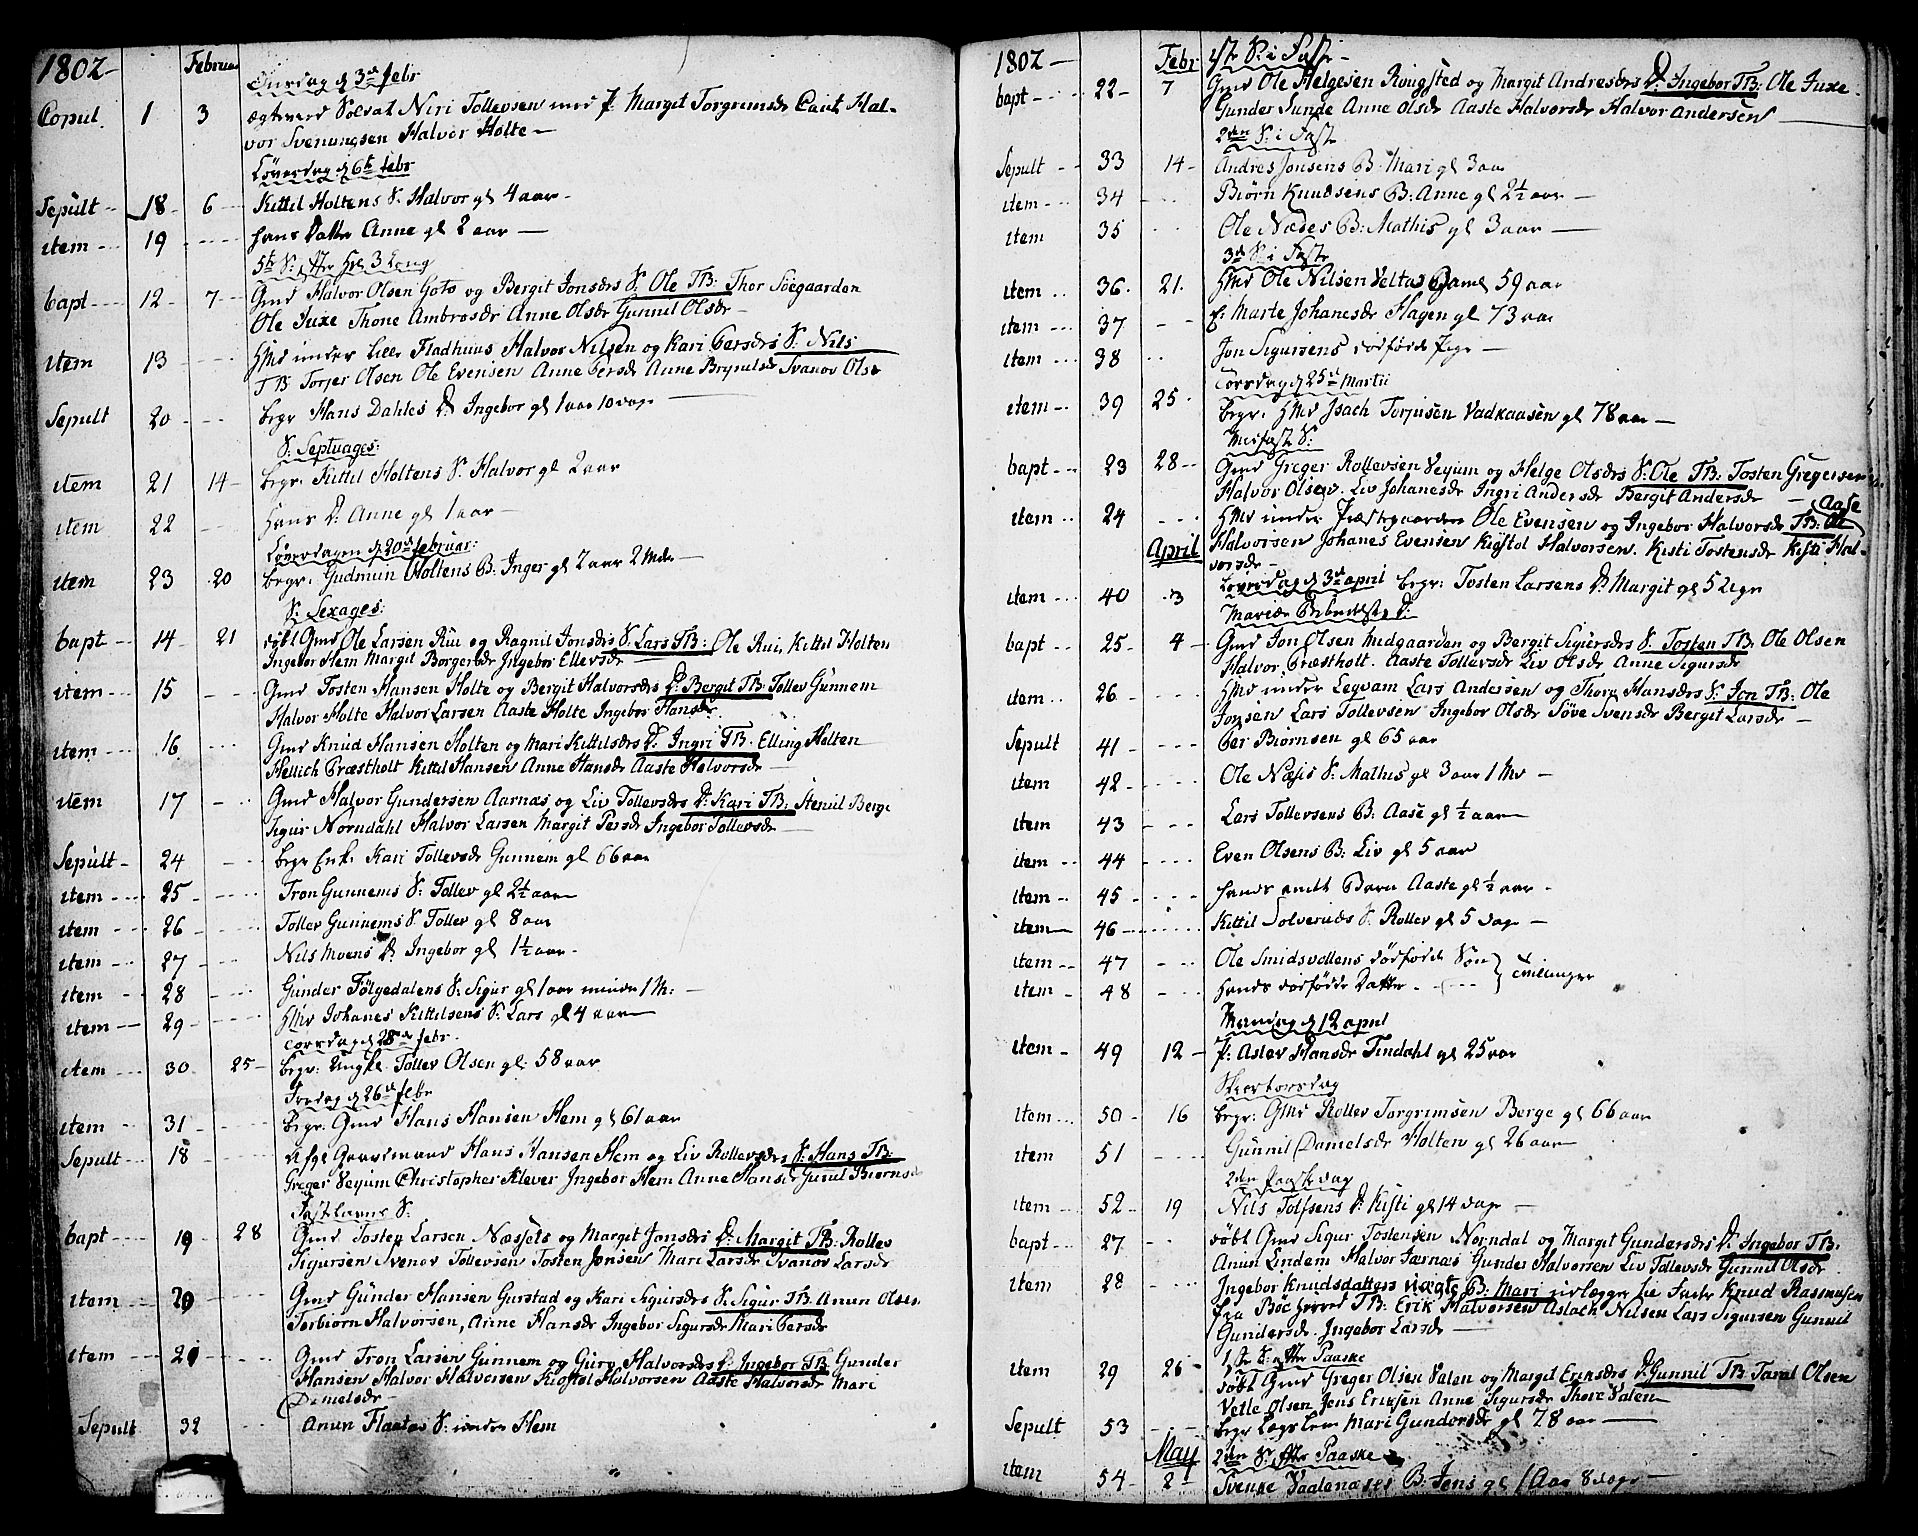 1802
Februar
Onsdag d 3de febr
Copul. 1 3 ægtevied Soldat Niri Tollevsen med P. Margit Torgrimsdr Caut. Hal-
vor Svenungsen Halvor Holte
Løverdag d 6te febr
Sepult 18 6 Kittil Holtens S. Halvor gl 4 aar
item 19 hans Datter Anne gl 2 aar
5te S: efter Hel 3 Kong
bapt 12 7 Gmd Halvor Olsen Goto og Bergit Jonsdrs S. Ole TB: Thor Söegaarden
Ole Juxe Thone Ambrosdr Anne Olsdr Gunnil Olsdr
item 13 Hmd under Lille Fladhuus Halvor Nilsen og Kari Persdrs S. Nils
TB: Torjer Olsen Ole Evensen Anne Persdr Anne Brynilsdr Svanov Olsdr
Sepult 20 begr Hans Dahles D. Ingebor gl 1 aar 10 dage
S. Septuages:
item 21 14 begr. Kittil Holtens S. Halvor gl 2 aar
item 22 hans D. Anne gl 1 aar
Løverdagen d 20de februar:
item 23 20 begr. Gudmun Holtens B. Inger gl 2 aar 2 Mdr
S. Sexages:
bapt 14 21 döbt Gmd Ole Larsen Rui og Ragnil Jonsdrs S. Lars TB: Ole Rui, Kittil Holten
Ingebor Hem Margit Borgersdr Ingebor Ellevsdr
item 15 Gmd Tosten Hansen Holte og Bergit Halvorsdrs D. Bergit TB: Tollev Gunnem
Halvor Holte Halvor Larsen Aaste Holte Ingebor Hansdr.
item 16 Gmd Knud Hansen Holten og Mari Kittilsdrs D. Ingri TB: Elling Holten
Hellich Præstholt Kittil Hansen Anne Hansdr Aaste Halvorsdr
item 17 Gmd Halvor Gundersen Aarnæs og Liv Tollevsdrs D. Kari TB: Stenul Berge
Sigur Norndahl Halvor Larsen Margit Persdr Ingebor Tollevsdr
Sepult 24 begr Enke Kari Tollevsdr Gunnem gl 66 aar
item 25 Tron Gunnems S. Tollev gl 2½ aar
item 26 Tollev Gunnems S. Tollev gl 8 aar
item 27 Nils Moens D. Ingebor gl 1½ aar
item 28 Gunder Fölgedalens S. Sigur gl 1 aar mindre 1 M:
item 29 Hmd Johanes Kittilsens S. Lars gl 4 aar
Torsdag d 25de febr.
item 30 25 begr: Ungke. Tollev Olsen gl: 58 aar
Fredag d 26de febr
item 31 begr. Gmd Hans Hansen Hem gl 61 aar
Sepult 18 Afgl Gaardmand Hans Hansen Hem og Liv Rollevsdrs S. Hans TB:
Greger Veyum Christopher Klever Ingebor Hem Anne Hansdr Gunil Biørnsdr
Fastelavns S.
bapt 19 28 Gmd Tosten Larsen Næsset og Margit Jonsdrs D. Margit TB: Rollev
Sigursen Svenov Tollevsen Tosten Jonsen Mari Larsdr Svanov Larsdr
item 20 Gmd Gunder Hansen Gurstad og Kari Sigursdrs S. Sigur TB: Anun Olsen
Torbiørn Halvorsen, Anne Hansdr Ingebor Sigursdr Mari Persdr
item 21 Gmd Tron Larsen Gunnem og Guro Halvorsdrs D. Ingebor TB. Gunder
Hansen Halvor Halvorsen Kiøstol Halvorsen Aaste Halvorsdr Mari
Danielsdr
Sepult 32 Anun Flaatas S. under Hem
1802
Febr 1ste S. i Faste
bapt 22 7 Gmd Ole Helgesen Ringsted og Margit Andresdrs D. Ingebor TB: Ole Juxe
Gunder Sunde Anne Olsdr Aaste Halvorsdr Halvor Andersen
2den S. i Fast
Sepult 33 14 Andres Jonsens B. Mari gl 3 aar
item 34 Biørn Knudsens B. Anne gl 2½ aar
item 35 Ole Nædes B: Mathis gl 3 aar
3de S. i Faste
item 36 21 Hmd Ole Nilsen Veltas gl 59 aar
item 37 E. Marte Johanesdr Hagen gl 73 aar
item 38 Jon Sigursens dødfødte Pige
Torsdag d 25de Martii
item 39 25 begr. Hmd Isach Torjusen Vadkaasen gl 78 aar
Midfaste S.
bapt 23 28 Gmd Greger Rollevsen Veyum og Helge Olsdrs S. Ole TB: Tosten Gregersen
Halvor Olsen. Liv Johanesdr Ingri Andersdr Bergit Andersdr
item 24 Hmd under Præstegaarden Ole Evensen og Ingebor Halvorsdr Aase TB: Ole
Halvorsen Johanes Evensen Kiøstol Halvorsen. Kisti Tostensdr Kisti Hal-
vorsdr
April
Løverdag d 3de april
item 40 3 begr: Tosten Larsens D. Margit gl 5 Uger
Mariæ Bebudelses D.
bapt 25 4 Gmd Jon Olsen Midgaarden og Bergit Sigursdrs S. Tosten TB. Ole Olsen
Halvor Præstholt. Aaste Tollevsdr Liv Olsdr Anne Sigursdr
item 26 Hmd under Legvam Lars Andersen og Thore Hansdrs S. Jon TB: Ole
Jonsen Lars Tollevsen Ingebor Olsdr Söve Svensdr Bergit Larsdr
Sepult 41 Per Biørnsen gl 65 aar
item 42 Ole Næsis S. Mathis gl 3 aar 1 Md
item 43 Lars Tollevsens B. Aase gl ½ aar
item 44 Even Olsens B: Liv gl 5 aar
item 45 hands andt Barn Aaste gl ½ aar
item 46 Kittil Solvernæs S. Rollev gl 5 dage
item 47 Ole Smidsvollens dødfødde Søn } tvillinger
item 48 hands dødfødde Datter
Mandag d 12 april
item 49 12 P. Aslev Hansdr Tindahl gl 25 aar
Skiertorsdag
item 50 16 begr: Gmd Rollev Torgrimsen Berge gl 66 aar
item 51 Gunnil Danielsdr Holten gl 26 aar
2den Paaskedag
item 52 19 Nils Tolfsens D. Kisti gl 14 dage
bapt 27 döbt Gmd Sigur Tostensen Norndal og Margit Gundersdrs D. Ingebor TB:
Anun Lindem Halvor Jarnæs Gunder Halvorsen Liv Tollevsdr Gunnil Olsdr
item 28 Ingebor Knudsdatters uægte B. Mari udlægger til Fader Knud Rasmusen
fra Bøe herred TB: Erik Halvorsen Aslach Nilsen Lars Sigursen Gunnil
Gundersdr. Ingebor Larsdr
1ste S. efter Paaske
item 29 26 döbt Gmd Greger Olsen Valen og Margit Eriksdrs D. Gunnil TB: Taral Olsen
Vetle Olsen Jens Eriksen Anne Sigursdr Thore Valen
Sepult 53 begr Lægslem Mari Gundersdr gl 78 aar
May 2den S. efter Paaske
item 54 2 Svenke Vaalenæses B. Jens gl 1 Aar 8 dage